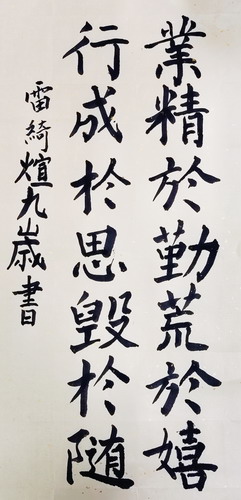 業精於勤荒於嬉
行成於思毁於随
雷綺煊九歲書